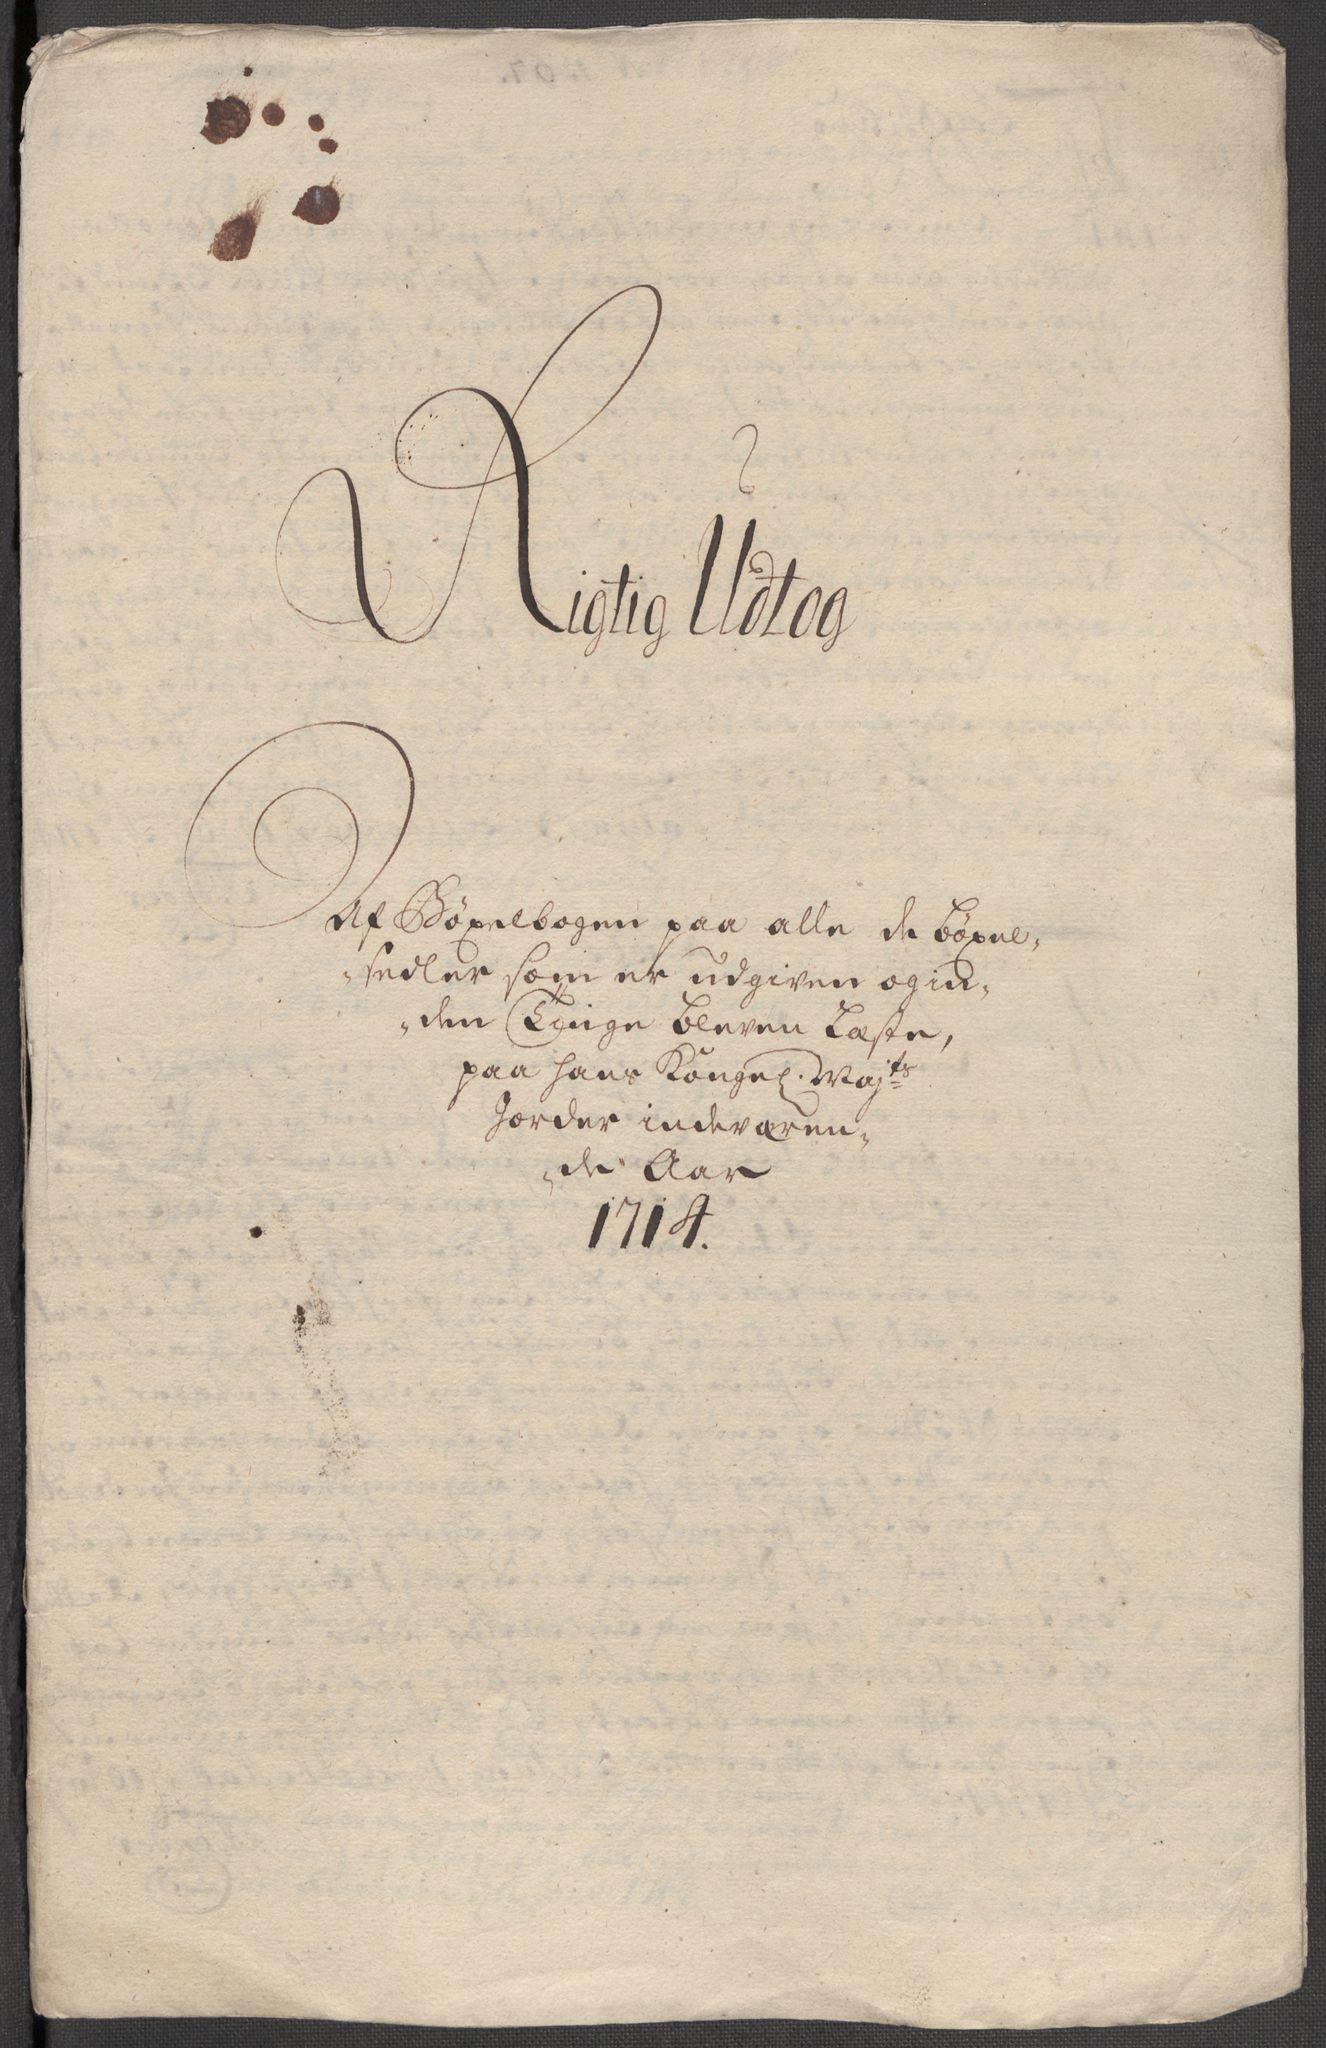 Rigtig Udtog
Af Böxelbogen paa alle de böxel-
-sedler som er udgiven og in-
-den Tinge bleven Læste,
paa hans Kongel. Maj:ts
Jorder indeværen-
-de Aar
1714.